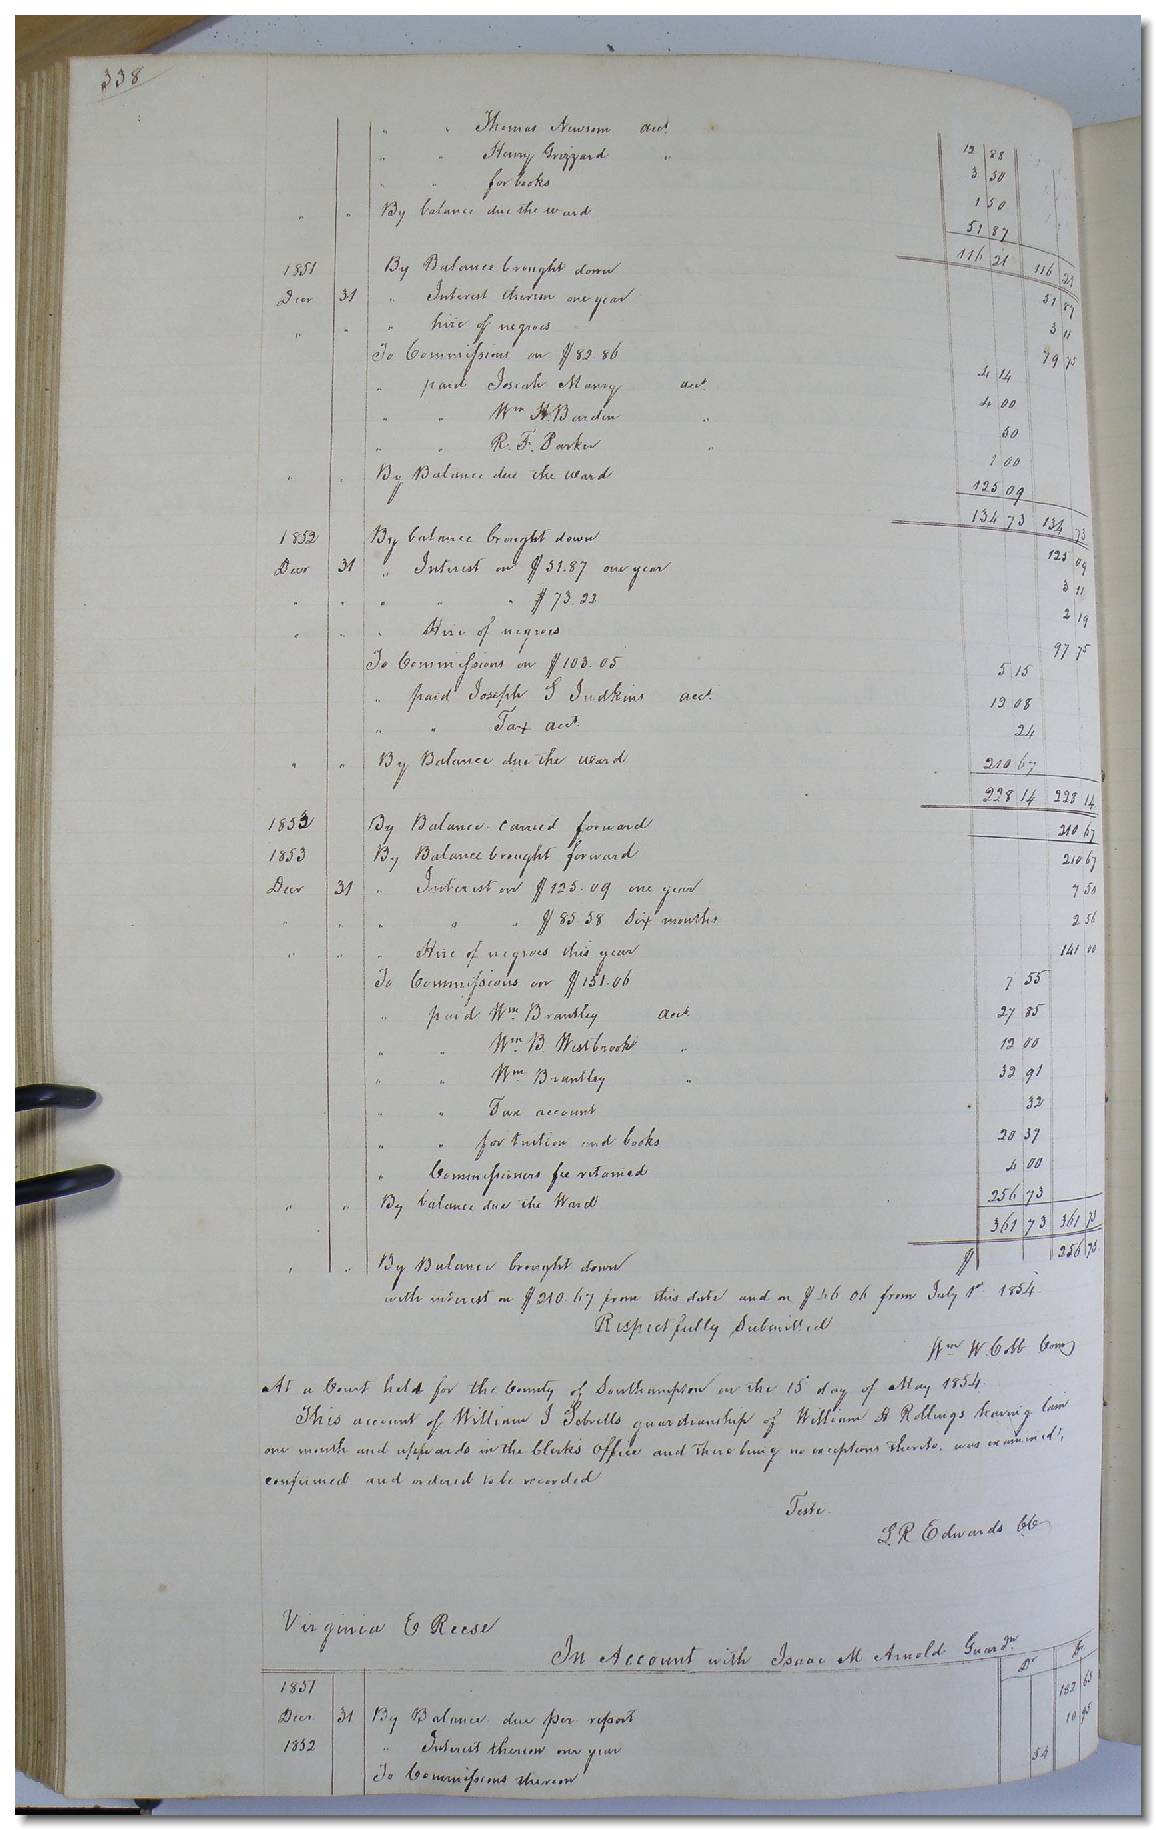 338
" " Thomas Newsom acct 12 88
" " Henry Grizzard " 3 50
" " for books 1 50
" " By balance due the ward 51 87
116 21 116 21
1851 By Balance brought down 51 87
Decr 31 " Interest thereon one year 3 11
" " " hire of negroes 79 75
To Commissions on $82.86 4 14
" paid Josiah Manry acct 4 00
" " Wm H. Barden " 50
" " R. F. Parker " 1 00
" " By Balance due the ward 125 09
134 73 134 73
1852 By balance brought down 125 09
Decr 31 " Interest on $51.87 one year 3 11
" " " " " $73.22 2 19
" " " Hire of negroes 97 75
To Commissions on $103.05 5 15
" paid Joseph S Judkins acct. 12 08
" " Tax acct. 24
" " By Balance due the ward 210 67
228 14 228 14
1853 By Balance carried forward 210 67
1853 By Balance brought forward 210 67
Decr 31 " Interest on $125.09 one year 7 50
" " " " " $85.58 Six months 2 56
" " " Hire of negroes this year 141 00
To Commissions on $151.06 7 55
" paid Wm Brantley acct 27 85
" " Wm B. Westbrook " 12 00
" " Wm Brantley " 32 91
" " Tax account 32
" " for tuition and books 20 37
" Commissioners fee retained 4 00
" " By balance due the Ward 256 73
361 73 361 73
" " By Balance brought down $ 256 73
with interest on $210.67 from this date and on $46 06 from July 1st 1854
Respectfully Submitted
Wm W. Cobb Comr
At a Court held for the County of Southampton on the 15 day of May 1854
This account of William J Sebrells guardianship of William H Rollings having lain
one month and upwards in the Clerks Office and there being no exceptions thereto, was examined,
confirmed and ordered to be recorded
Teste.
L R Edwards CC
Virginia E Reese
In Account with Isaac M Arnold Guardn
Dr Cr
1851
Decr 31 By Balance due per report 182 63
1852 " Interest thereon one year 10 95
To Commissions thereon 54